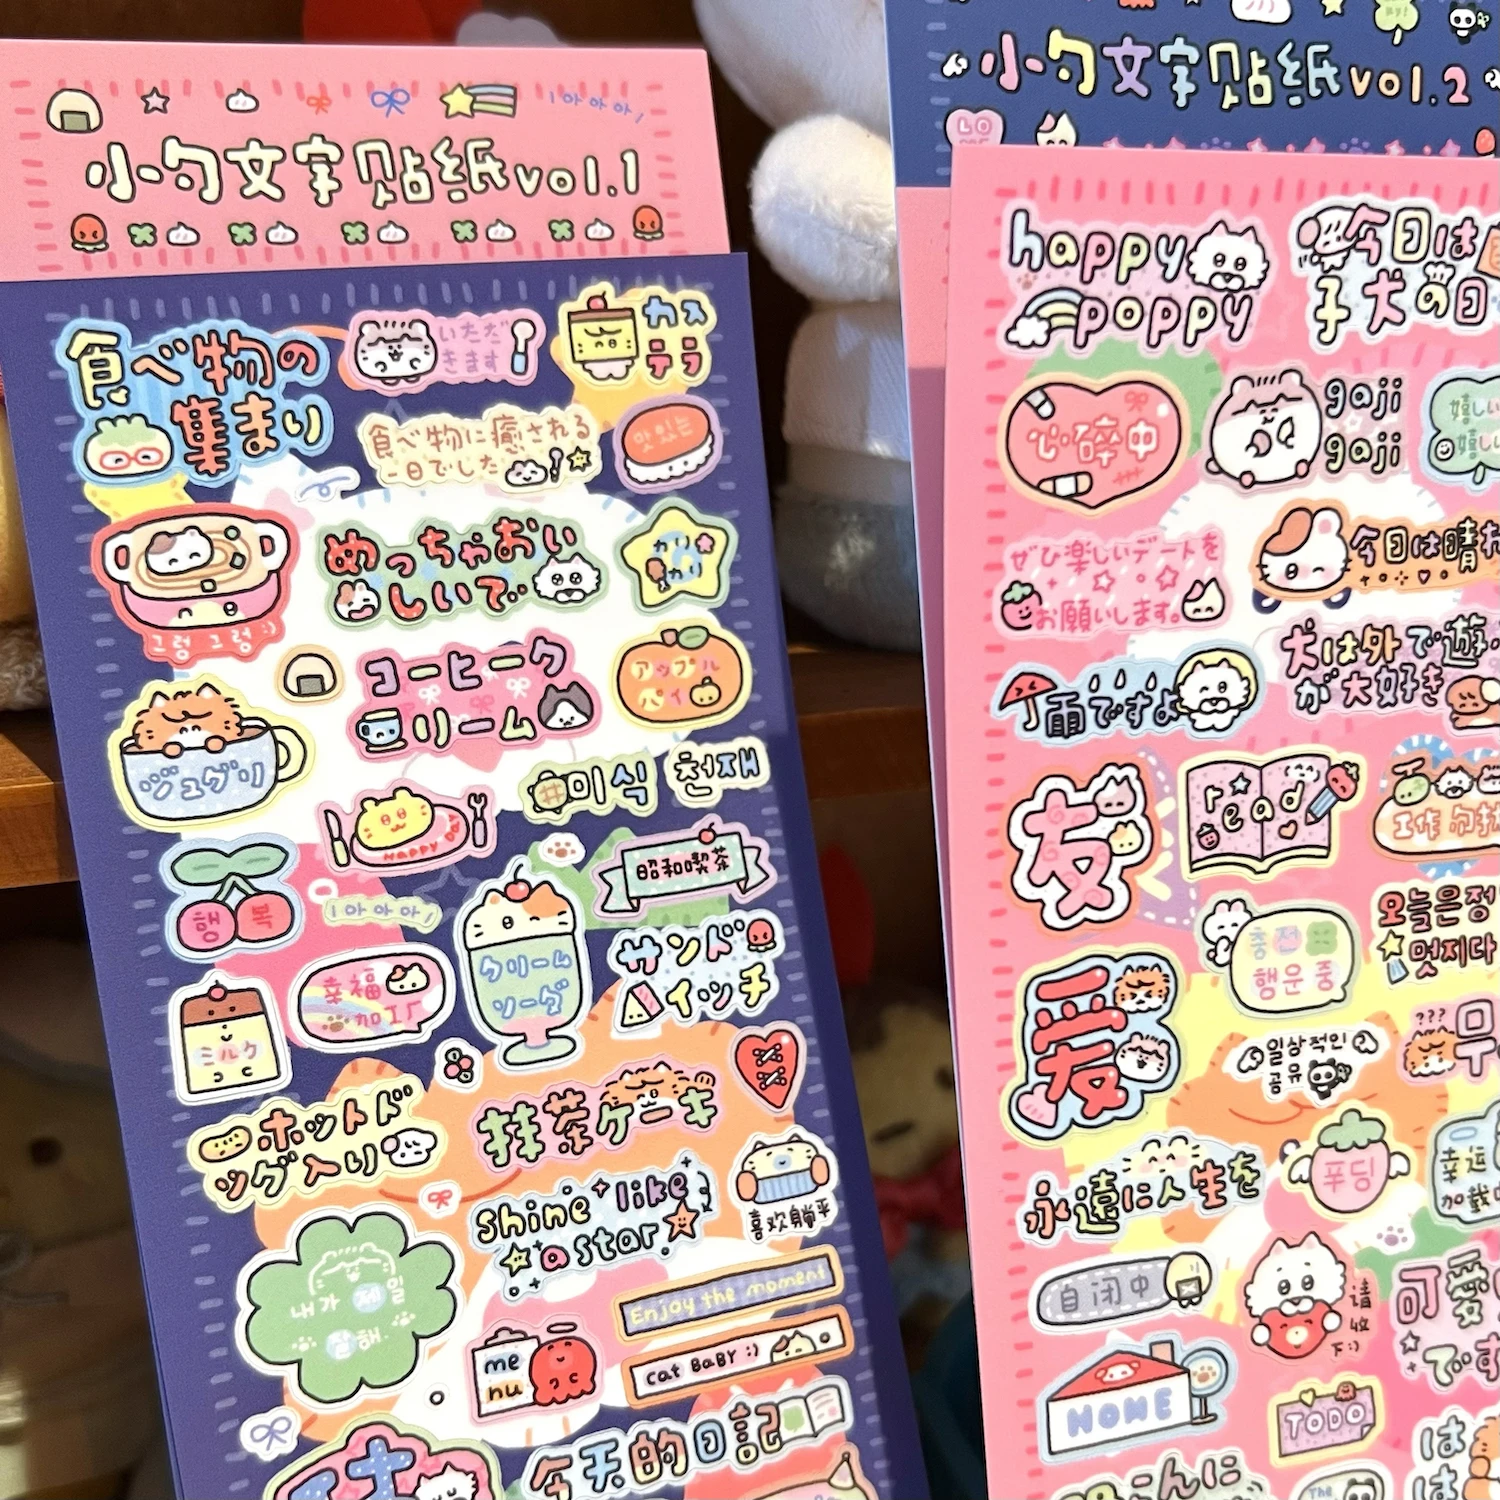 아 아 아
小勺文字贴纸vol.1
食べ物の
集まり
いただ
きます
カス
テラ
食べ物に癒される
一日でした
맛있는
그렁 그렁 :)
めっちゃおい
しいで
カリ
カリ
コーヒーク
リーム
アップル
パイ
ジュグリ
HAPPY DAY
미식 천재
행복
아 아 아
昭和喫茶
幸福
加工厂
クリーム
ソーダ
サンド
イッチ
ミルク
ホットド
ッグ入り
抹茶ケーキ
shine like
a star.
喜欢躺平
내가 제일
잘해.
me
nu
Enjoy the moment
cat BABY :)
今天的日記
小勺文字贴纸vol.2
LO
happy
poppy
今日は
子犬の日
心碎中
gaji
gaji
嬉しい
嬉しい
ぜひ楽しいデートを
お願いします。
今日は晴れ
雨ですよ
犬は外で遊
が大好き
友
read
工作
충전
행운 중
오늘은정
멋지다
爱
일상적인
공유
???
무
永遠に人生を
푸딩
幸运
加载中
自闭中
请收下:)
可愛い
です
HOME
TODO
こんに
は
は
The